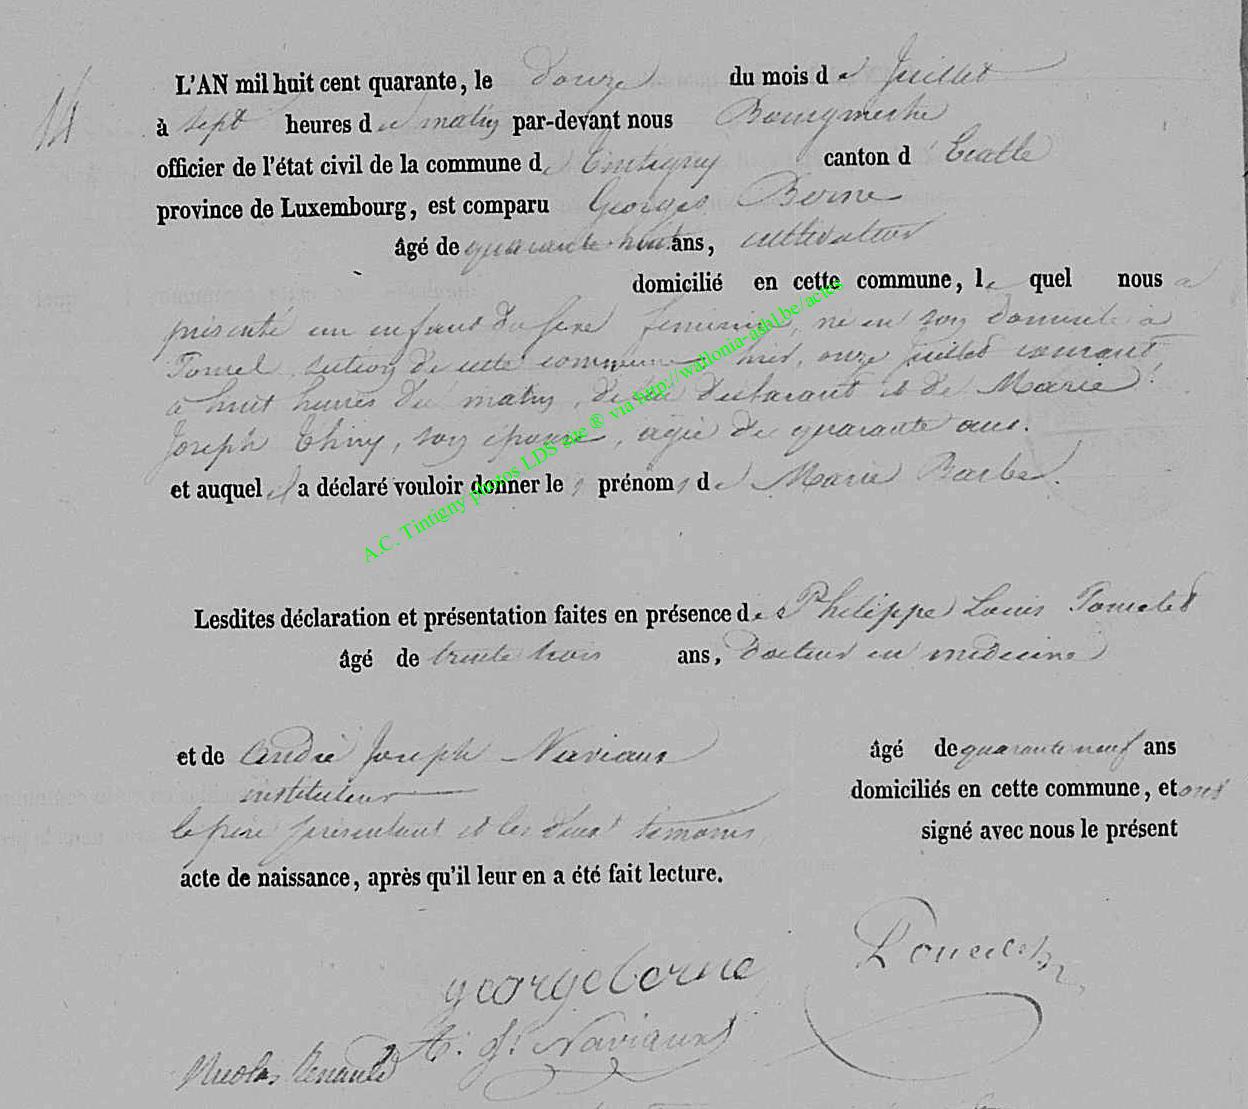 L'AN mil huit cent quarante, le douze du mois de Juillet
à sept heures de matin par-devant nous Bourgmestre
officier de l'état civil de la commune de Tintigny canton d' Etalle
province de Luxembourg, est comparu Georges Berne
âgé de quarante huit ans, cultivateur
domicilié en cette commune, lequel nous a
présenté un enfant du sexe feminin, né en son domicile à
section de cette commune hier, onze juillet courant
à huit heures du matin, de lui déclarant et de Marie
Joseph Thiry, son épouse, agée de quarante ans.
et auquel il a déclaré vouloir donner les prénoms de Marie Barbe.
Lesdites déclaration et présentation faites en présence de Philippe Louis
âgé de trente trois ans, docteur en médecine
et de André Joseph Naviaux âgé de quarante neuf ans
instituteur domiciliés en cette commune, et ont
le père présentant et les deux témoins, signé avec nous le présent
acte de naissance, après qu'il leur en a été fait lecture.
george berne
A. J. Naviaux
Nicolas Renauld
A.C. Tintigny photos LDS site ® via http://wallonia-asbl.be/actes